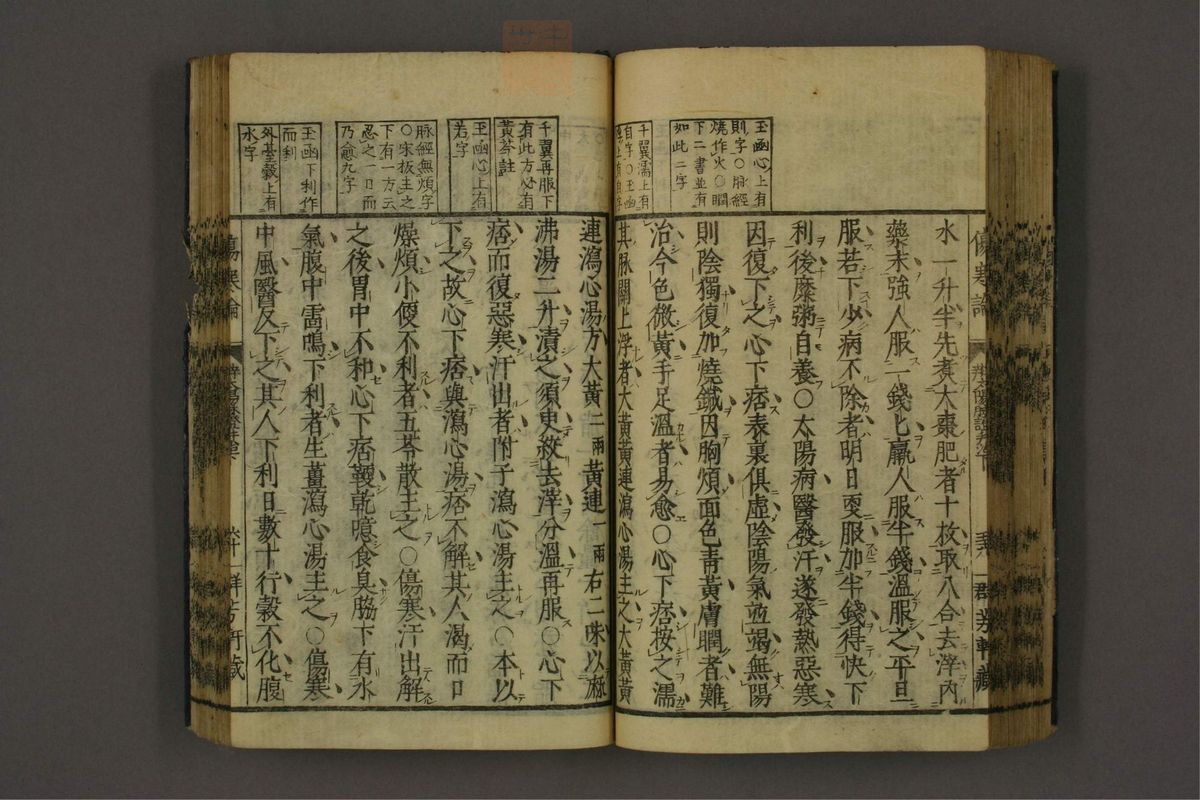 玉函心上有
則字○脉經
燒作火○瞤
下二書並有
如此二字
千翼濡上有
自字○玉函
傷寒論
水一升半先煑大棗肥者十枚取八合去滓內
藥末強人服一錢匕羸人服半錢溫服之平旦
服若下少病不除者明日更服加半錢得快下
利後糜粥自養○太陽病醫發汗遂發熱惡寒
因復下之心下痞表裏俱虛陰陽氣竝竭無陽
則陰獨復加燒鍼因胸煩面色青黃膚瞤者難
治今色微黃手足溫者易愈○心下痞按之濡
其脉關上浮者大黃黃連瀉心湯主之大黃黃
千翼再服下
有此方必有
黃芩註
玉函心上有
若字
脉經無煩字
○宋板主之
下有一方云
忍之一日而
乃愈九字
玉函下利作
而利
外臺穀上有
水字
連瀉心湯方大黃二兩黃連一兩右二味以麻
沸湯二升漬之須臾絞去滓分溫再服○心下
痞而復惡寒汗出者附子瀉心湯主之○本以
下之故心下痞與瀉心湯痞不解其人渴而口
燥煩小便不利者五苓散主之○傷寒汗出解
之後胃中不和心下痞鞕乾噫食臭脇下有水
氣腹中雷鳴下利者生薑瀉心湯主之○傷寒
中風醫反下之其人下利日數十行穀不化腹
傷寒論